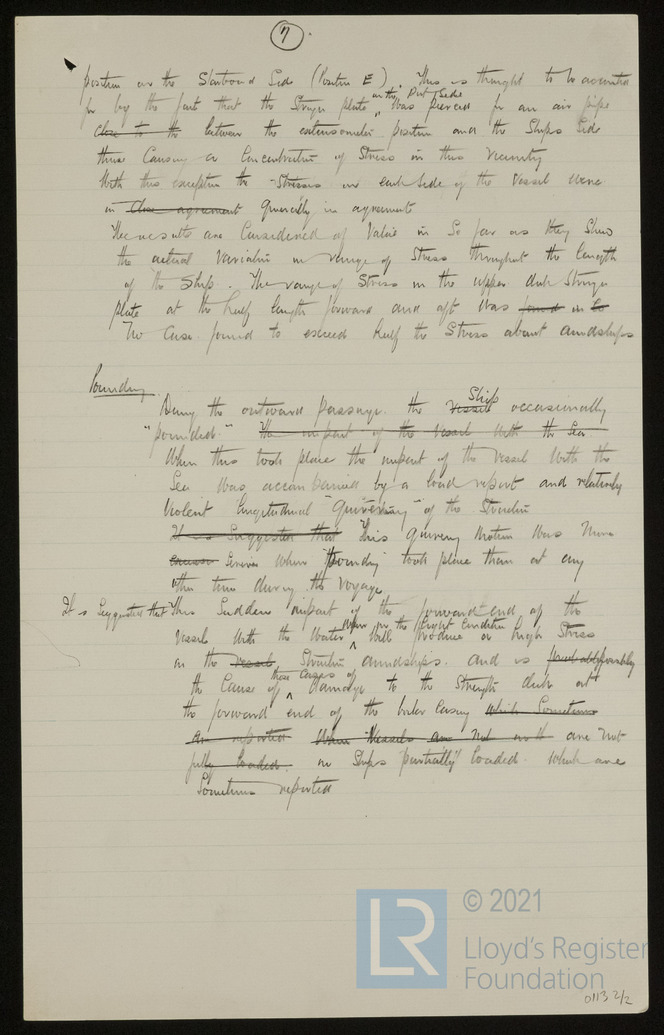 7
position on the Starboard Side (Position E). This is thought to be accounted
for by the fact that the Stringer plate on the Port Side was pierced for an air pipe
close to the between the extensometer position and the Ships Side
thus Causing a Concentration of Stress in this Vicinity
With this exception the Stresses on each Side of the Vessel were
in Close agreement Generally in agreement
The results are Considered of Value in So far as they Show
the actual Variation in range of Stress throughout the length
of the Ship. The range of Stress in the upper deck Stringer
plate at the half length forward and aft was found in to
no Case found to exceed half the Stress about amidships
Pounding
During the outward passage the Vessel Ship occasionally
"pounded." The impact of the Vessel With the Sea
When this took place the impact of the Vessel With the
Sea Was accompanied by a loud report and relatively
Violent longitudinal "quivering" of the Structure
It is Suggested that This quivering Motion Was More
Severe When "pounding" took place than at any
other time during the Voyage.
It is Suggested that This Sudden impact of the forward end of the
Vessels With the Water when in the light Condition Will produce a high Stress
in the Vessels Structure amidships. and is possibly
the Cause of those cases of damage to the Strength deck at
the forward end of the boiler Casing which Sometimes
are reported When Vessels are not are not
fully loaded. in Ships "partially" loaded which are
Sometimes reported
© 2021
LR
Lloyd's Register
Foundation
0113 2/2